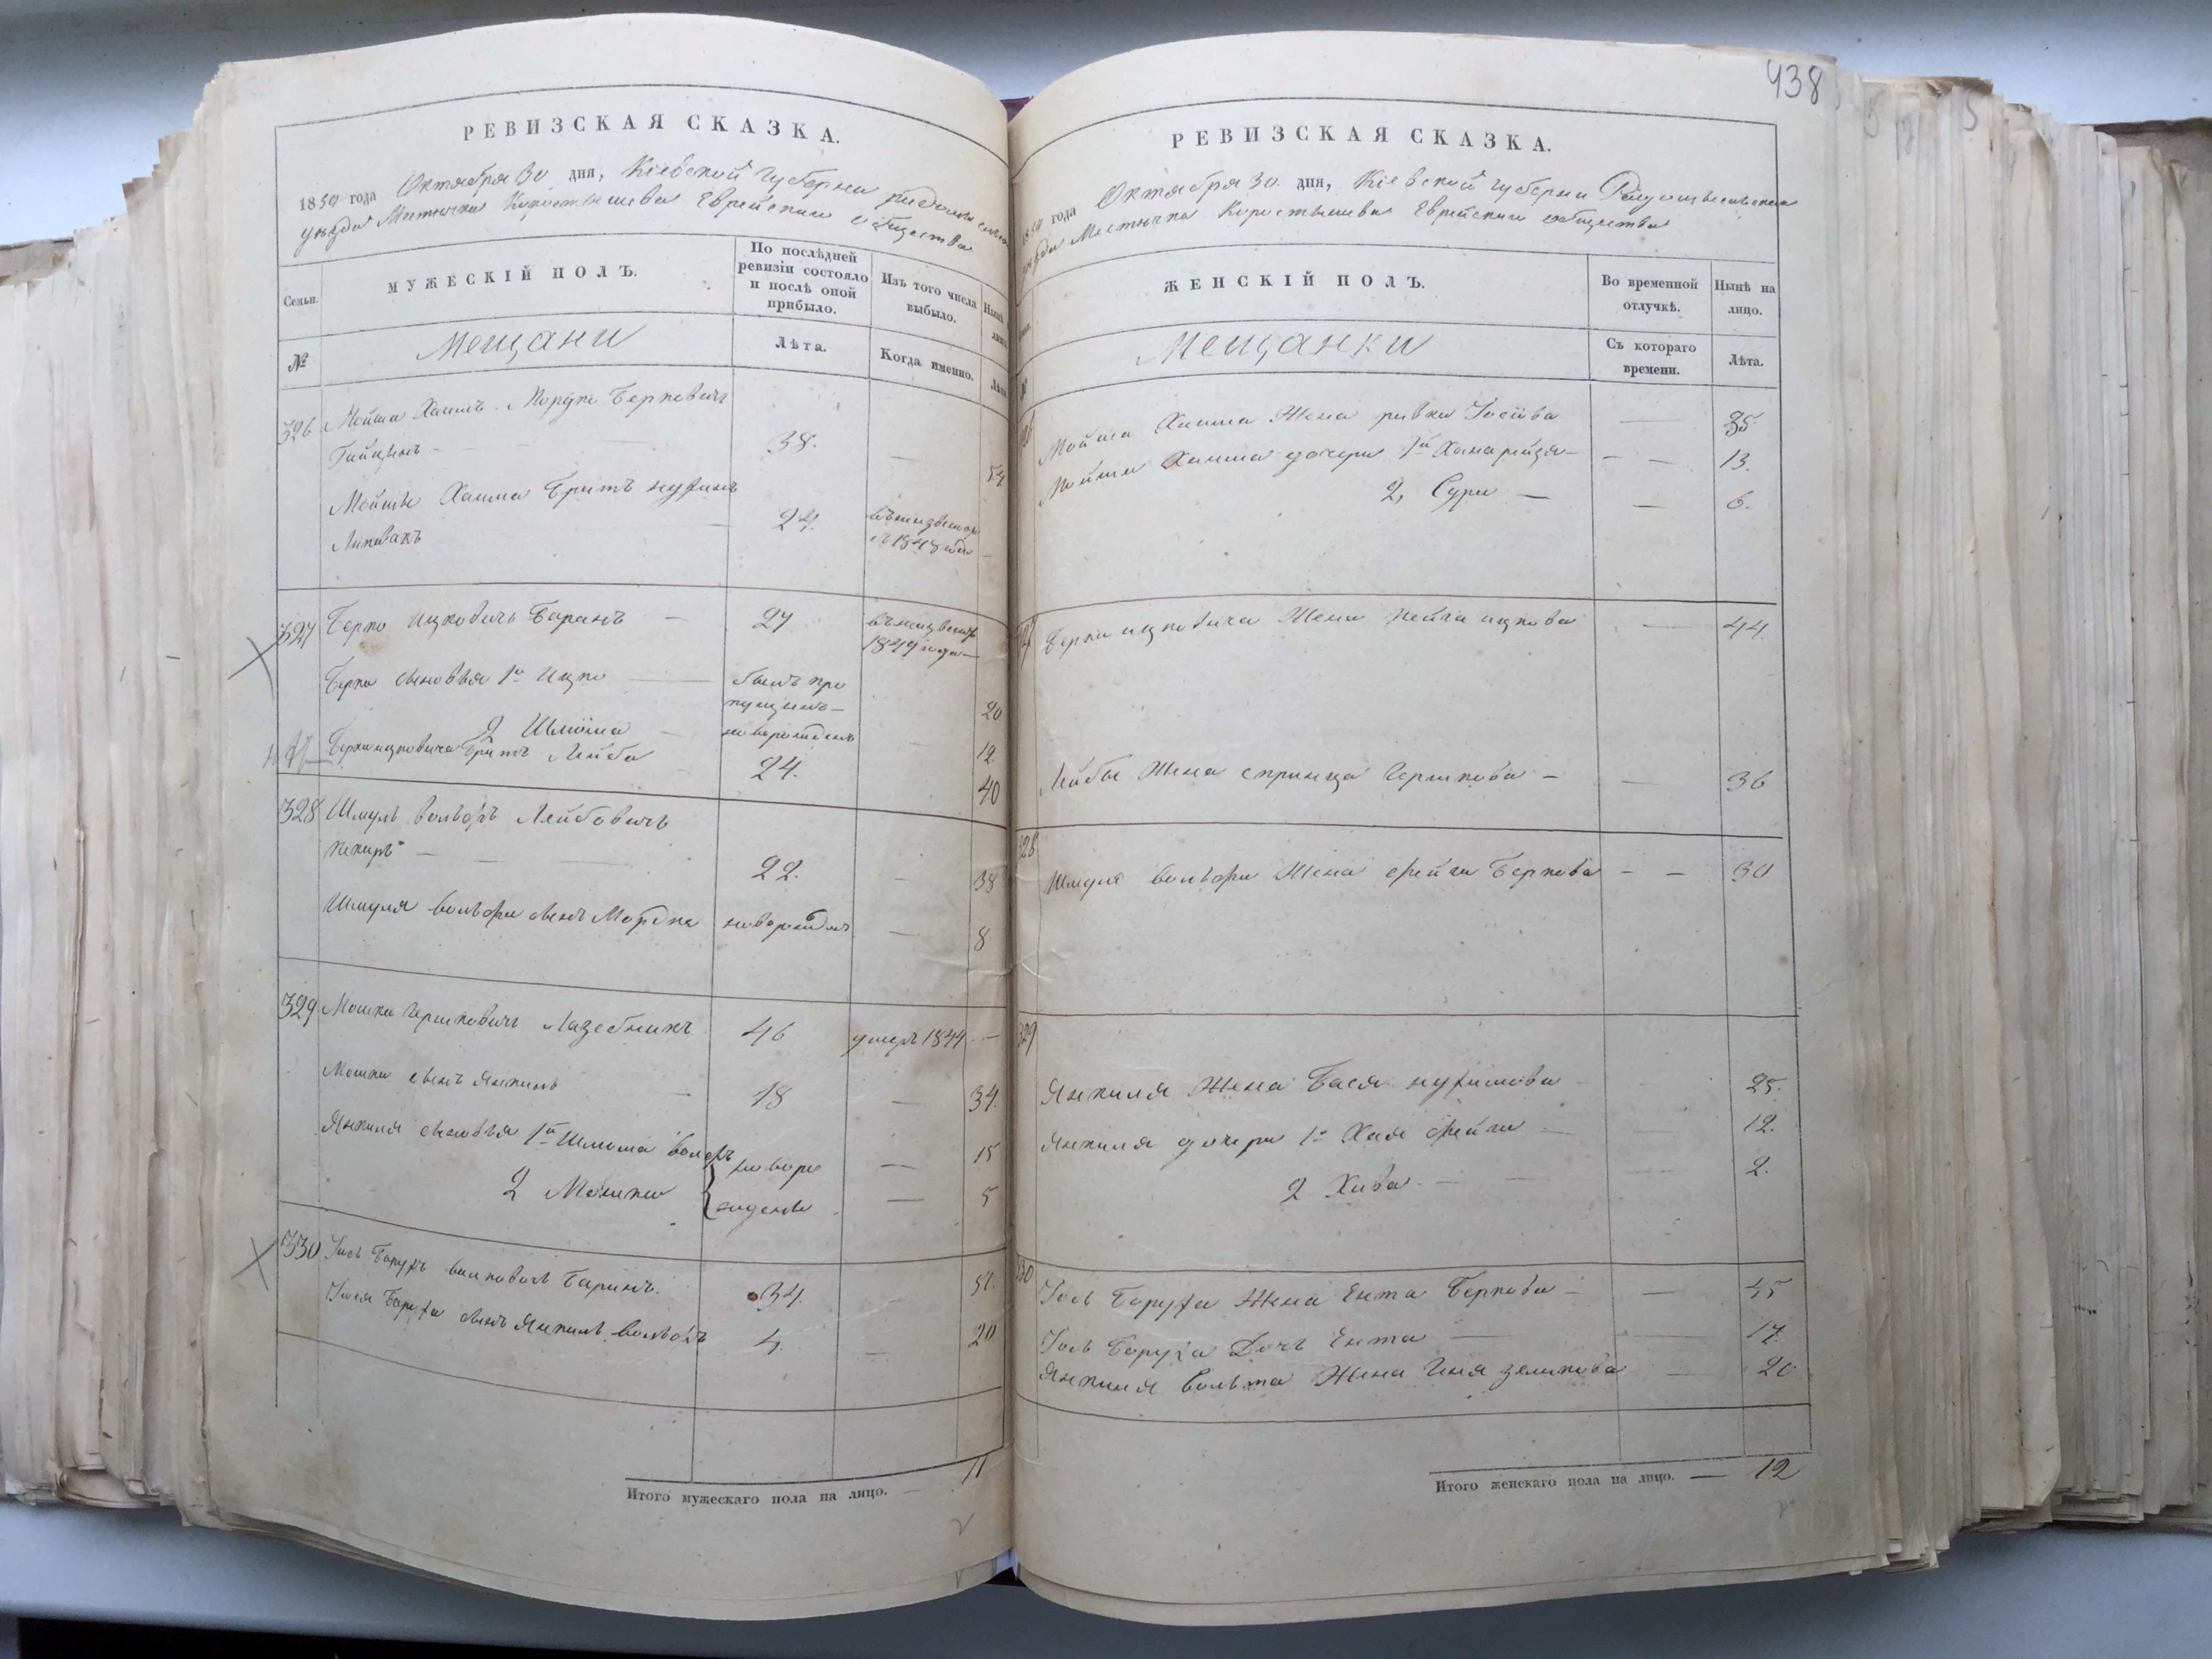 438
РЕВИЗСКАЯ СКАЗКА.
1850 года Октября 30 дня, Кіевской Губерніи
уезда Местечка Коростышева Еврейскаго общества
Семьи.
МУЖЕСКІЙ ПОЛЪ.
По послѣдней ревизіи состояло и послѣ оной прибыло.
Изъ того числа выбыло.
№
Мещани
Лѣта.
Когда именно.
Лѣта
326 Мойша Хаимъ Мордко Берковичъ
38. — 54
Мойши Хаима Братъ нухимъ
Литвакъ 24. 1848 —
327 Берко Ицковичъ Баранъ — 27 1849 года —
Берка сыновья 1й Ицко — былъ про
пущенъ — 20
2 Шлиома — новорожденъ 12
Берки ицковича Братъ Лейба 24. 40
328 Шмуль Вольфъ Лейбовичъ
22. — 38
Шмуля вольфа сынъ Мордко новорожденъ — 8
329 Мошко Гершковичъ Лазебникъ 46 умеръ 1844 —
Мошка сынъ Янкель — 18 — 34.
Янкеля сыновья 1й Шлиома вольфъ новоро — 15
2 Мошко жденъ — 5
330 Іось Борухъ волковичъ Баранъ. 34. — 51.
Іося Боруха сынъ Янкель вольфъ 4 — 20
Итого мужескаго пола на лицо. — 11
РЕВИЗСКАЯ СКАЗКА.
1850 года Октября 30 дня, Кіевской губерніи Радомысльскаго
уезда Местечка Коростышева Еврейскаго общества
ЖЕНСКІЙ ПОЛЪ.
Во временной отлучкѣ.
Нынѣ на лицо.
Мещанки
Съ котораго времени.
Лѣта.
Мойши Хаима Жена ривка Іосіова — 35
Мойши Хаима дочери 1я Ханарейзя — — — 13.
2, Сура — — 6.
Берки ицковича Жена Нейга ицкова — 44.
Лейбы Жена спринца Гершкова — — 36
328
Шмуля вольфа Жена фейга Беркова — — 30
329
Янкиля Жена Бася нухимова 25.
Янкиля дочери 1я Хая фейга — 12.
2 Хива — 2.
330
Іось Боруха Жена Ента Беркова — — 45
Іось Боруха Дочь Ента — — 17.
Янкиля вольфа Жена Геня зеликова — 20
Итого женскаго пола на лицо. — 12